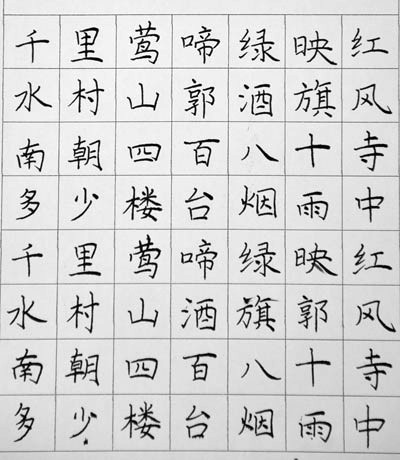 千里莺啼绿映红
水村山郭酒旗风
南朝四百八十寺
多少楼台烟雨中
千里莺啼绿映红
水村山酒旗郭风
南朝四百八十寺
多少楼台烟雨中